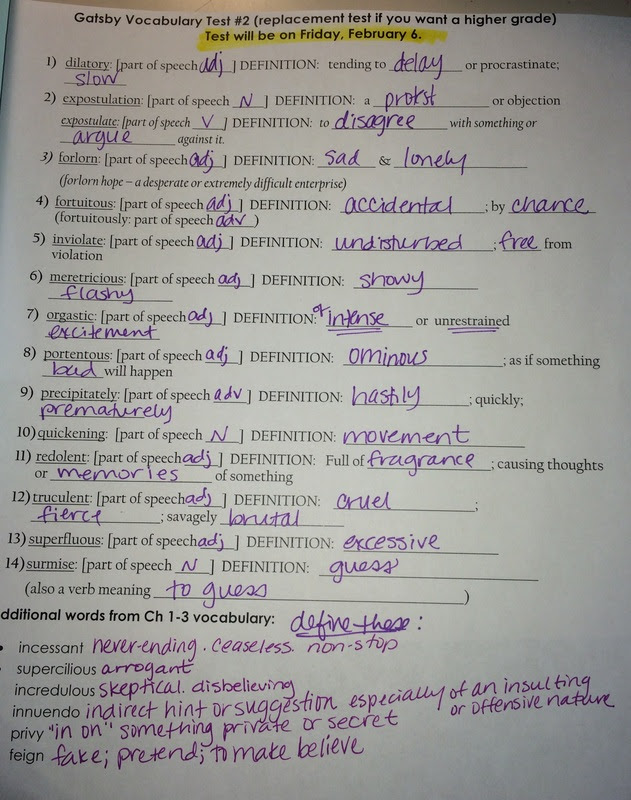 Gatsby Vocabulary Test #2 (replacement test if you want a higher grade)
Test will be on Friday, February 6.
1) dilatory: [part of speech adj ] DEFINITION: tending to delay or procrastinate;
slow
2) expostulation: [part of speech N ] DEFINITION: a protest or objection
expostulate: [part of speech V ] DEFINITION: to disagree with something or
argue against it.
3) forlorn: [part of speech adj ] DEFINITION: sad & lonely
(forlorn hope – a desperate or extremely difficult enterprise)
4) fortuitous: [part of speech adj ] DEFINITION: accidental ; by chance
(fortuitously: part of speech adv )
5) inviolate: [part of speech adj ] DEFINITION: undisturbed ; free from
violation
6) meretricious: [part of speech adj ] DEFINITION: showy
flashy
7) orgastic: [part of speech adj ] DEFINITION: of intense or unrestrained
excitement
8) portentous: [part of speech adj ] DEFINITION: ominous ; as if something
bad will happen
9) precipitately: [part of speech adv ] DEFINITION: hastily ; quickly;
prematurely
10) quickening: [part of speech N ] DEFINITION: movement
11) redolent: [part of speech adj ] DEFINITION: Full of fragrance ; causing thoughts
or memories of something
12) truculent: [part of speech adj ] DEFINITION: cruel ;
fierce ; savagely brutal
13) superfluous: [part of speech adj ] DEFINITION: excessive
14) surmise: [part of speech N ] DEFINITION: guess
(also a verb meaning to guess )
dditional words from Ch 1-3 vocabulary: define these:
incessant never-ending. ceaseless. non-stop
supercilious arrogant
incredulous skeptical. disbelieving
innuendo indirect hint or suggestion especially of an insulting
or offensive nature
privy "in on" something private or secret
feign fake; pretend; to make believe